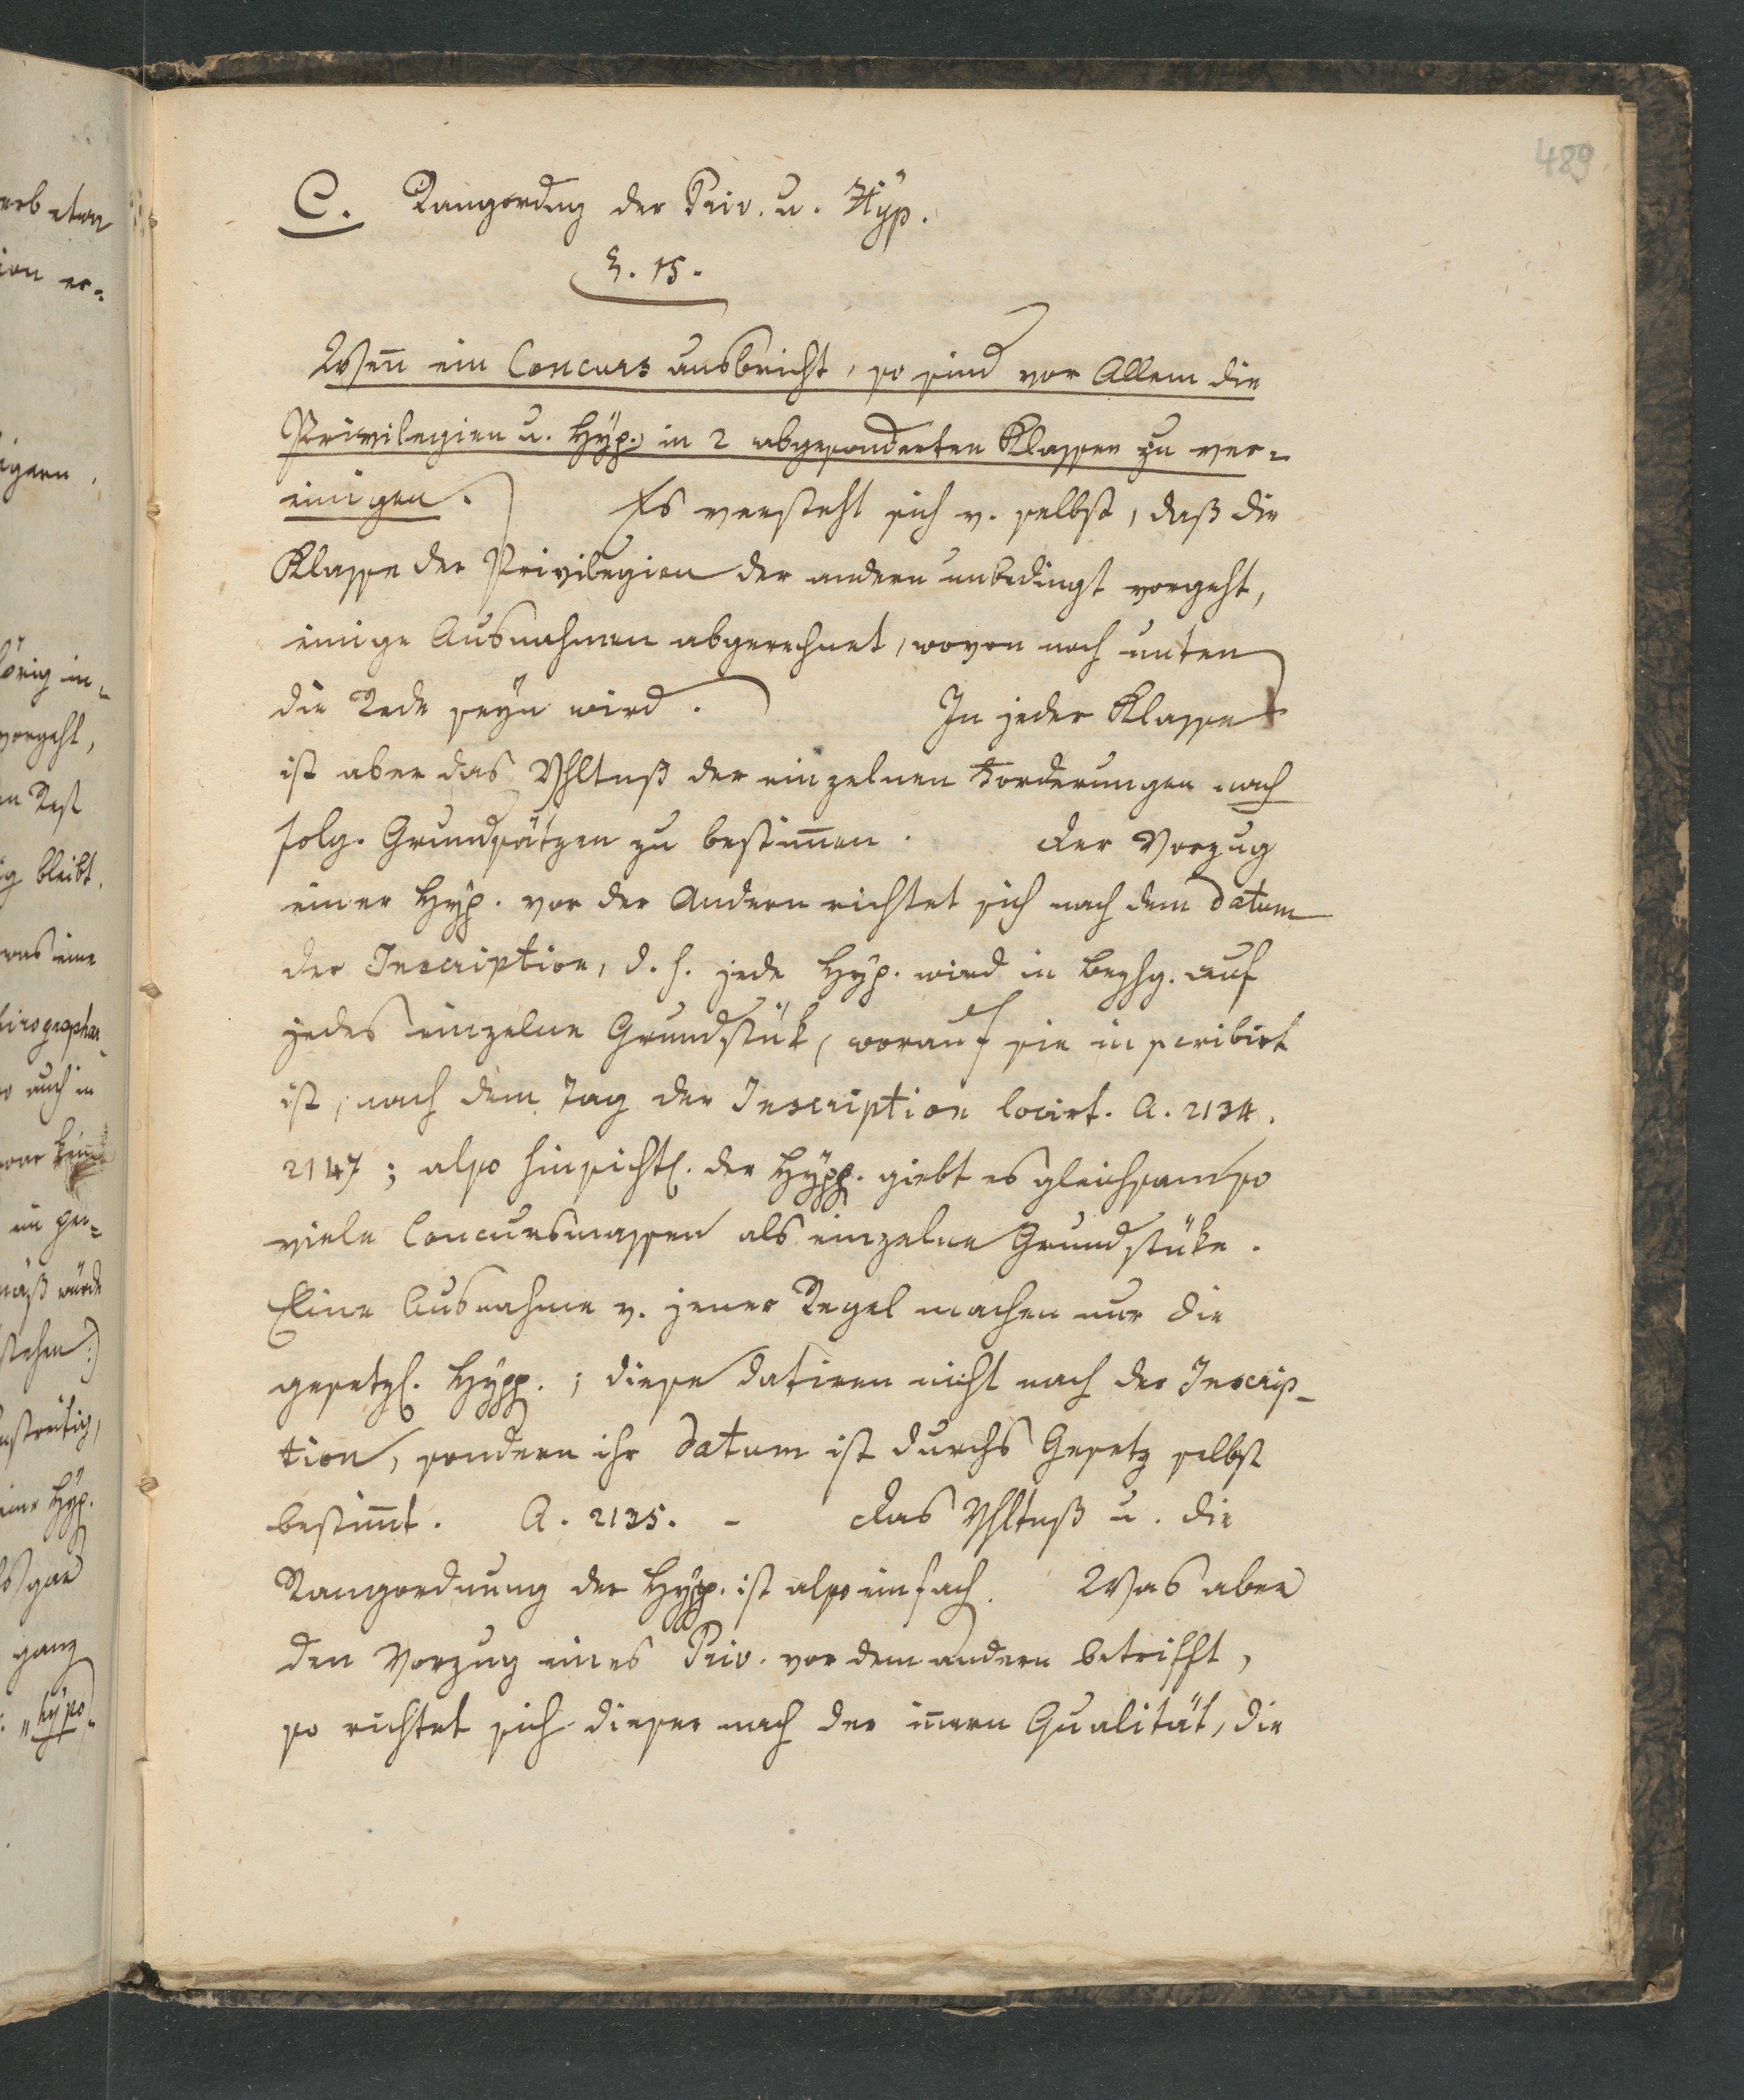 489
C. Rangordng der Priv. u. Hyp.
§. 15.
Weñ ein Concurs ausbricht, so sind vor Allem die
Privilegien u. Hyp. in 2 abgesonderten Klassen zu ver-
einigen. Es versteht sich v. selbst, daß die
Klasse der Privilegien der andern unbedingt vorgeht,
einige Ausnahmen abgerechnet, wovon noch unten
die Rede seyn wird. In jeder Klasse
ist aber das Vhltnß der einzelnen Forderungen nach
folg. Grundsätzen zu bestim̄en. Der Vorzug
einer Hyp. vor der Andern richtet sich nach dem Datum
der Inscription, d. h. jede Hyp. wird in Bezhg. auf
jedes einzelne Grundstük, worauf sie inscribirt
ist, nach dem Tag der Inscription locirt. A. 2134.
2147; also hinsichtl. der Hypp. giebt es gleichsam so
viele Concursmassen als einzelne Grundstüke.
Eine Ausnahme v. jener Regel machen nur die
gesetzl. Hypp.; diese datiren nicht nach der Inscrip-
tion, sondern ihr Datum ist durchs Gesetz selbst
bestim̄t. A. 2135. - Das Vhltnß u. die
Rangordnung der Hypp. ist also einfach. Was aber
den Vorzug eines Priv. vor dem andern betrifft,
so richtet sich dieser nach der iñern Qualität, die